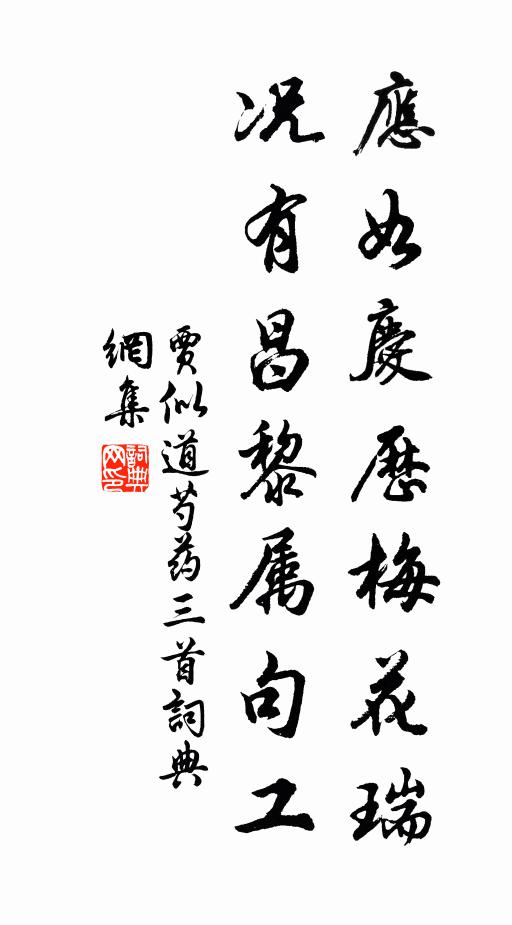 應如慶歷梅花瑞
况有昌黎属句工
賈似道芍药三首詞典
網集
詞典
网印